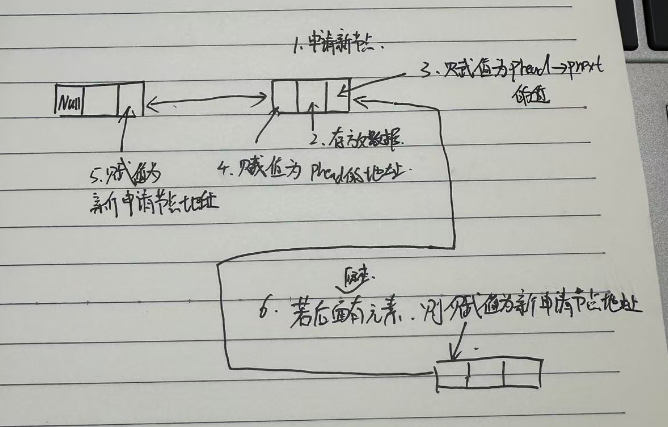 1. 申请新节点.
3. 赋值为phead→pnext
的值
Null
2. 存放数据.
4. 赋值为 phead的地址.
5. 赋值为
新申请节点地址
6. 若后面有元素. 则赋值为新申请节点地址